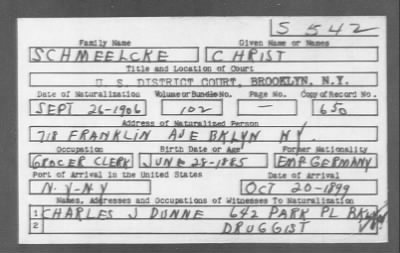 S 542
Family Name Given Name or Names
SCHMEELCKE CHRIST
Title and Location of Court
U. S. DISTRICT COURT, BROOKLYN, N.Y.
Date of Naturalization Volume or Bundle No. Page No. Copy of Record No.
SEPT 26-1906 102 — 650
Address of Naturalized Person
718 FRANKLIN AVE BKLYN NY.
Occupation Birth Date or Age Former Nationality
GROCER CLERK JUNE 28-1885 EMP. GERMANY
Port of Arrival in the United States Date of Arrival
N.Y-N.Y OCT 20-1899
Names, Addresses and Occupations of Witnesses To Naturalization
1 CHARLES J DUNNE 642 PARK PL BKLYN
2 DRUGGIST